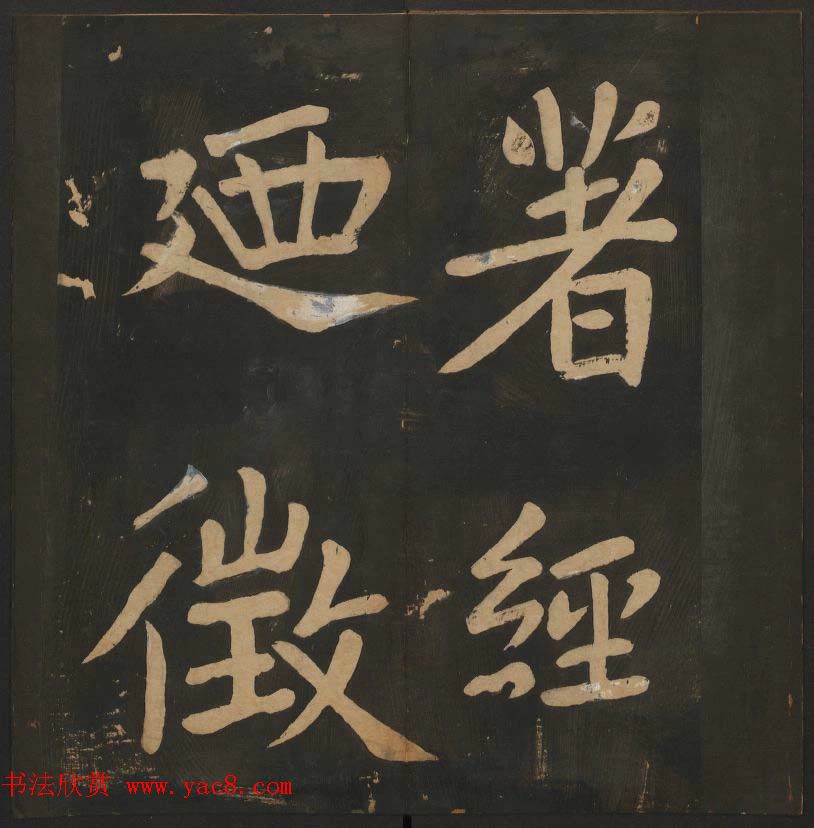 著經
廼徵
书法欣赏 www.yac8.com